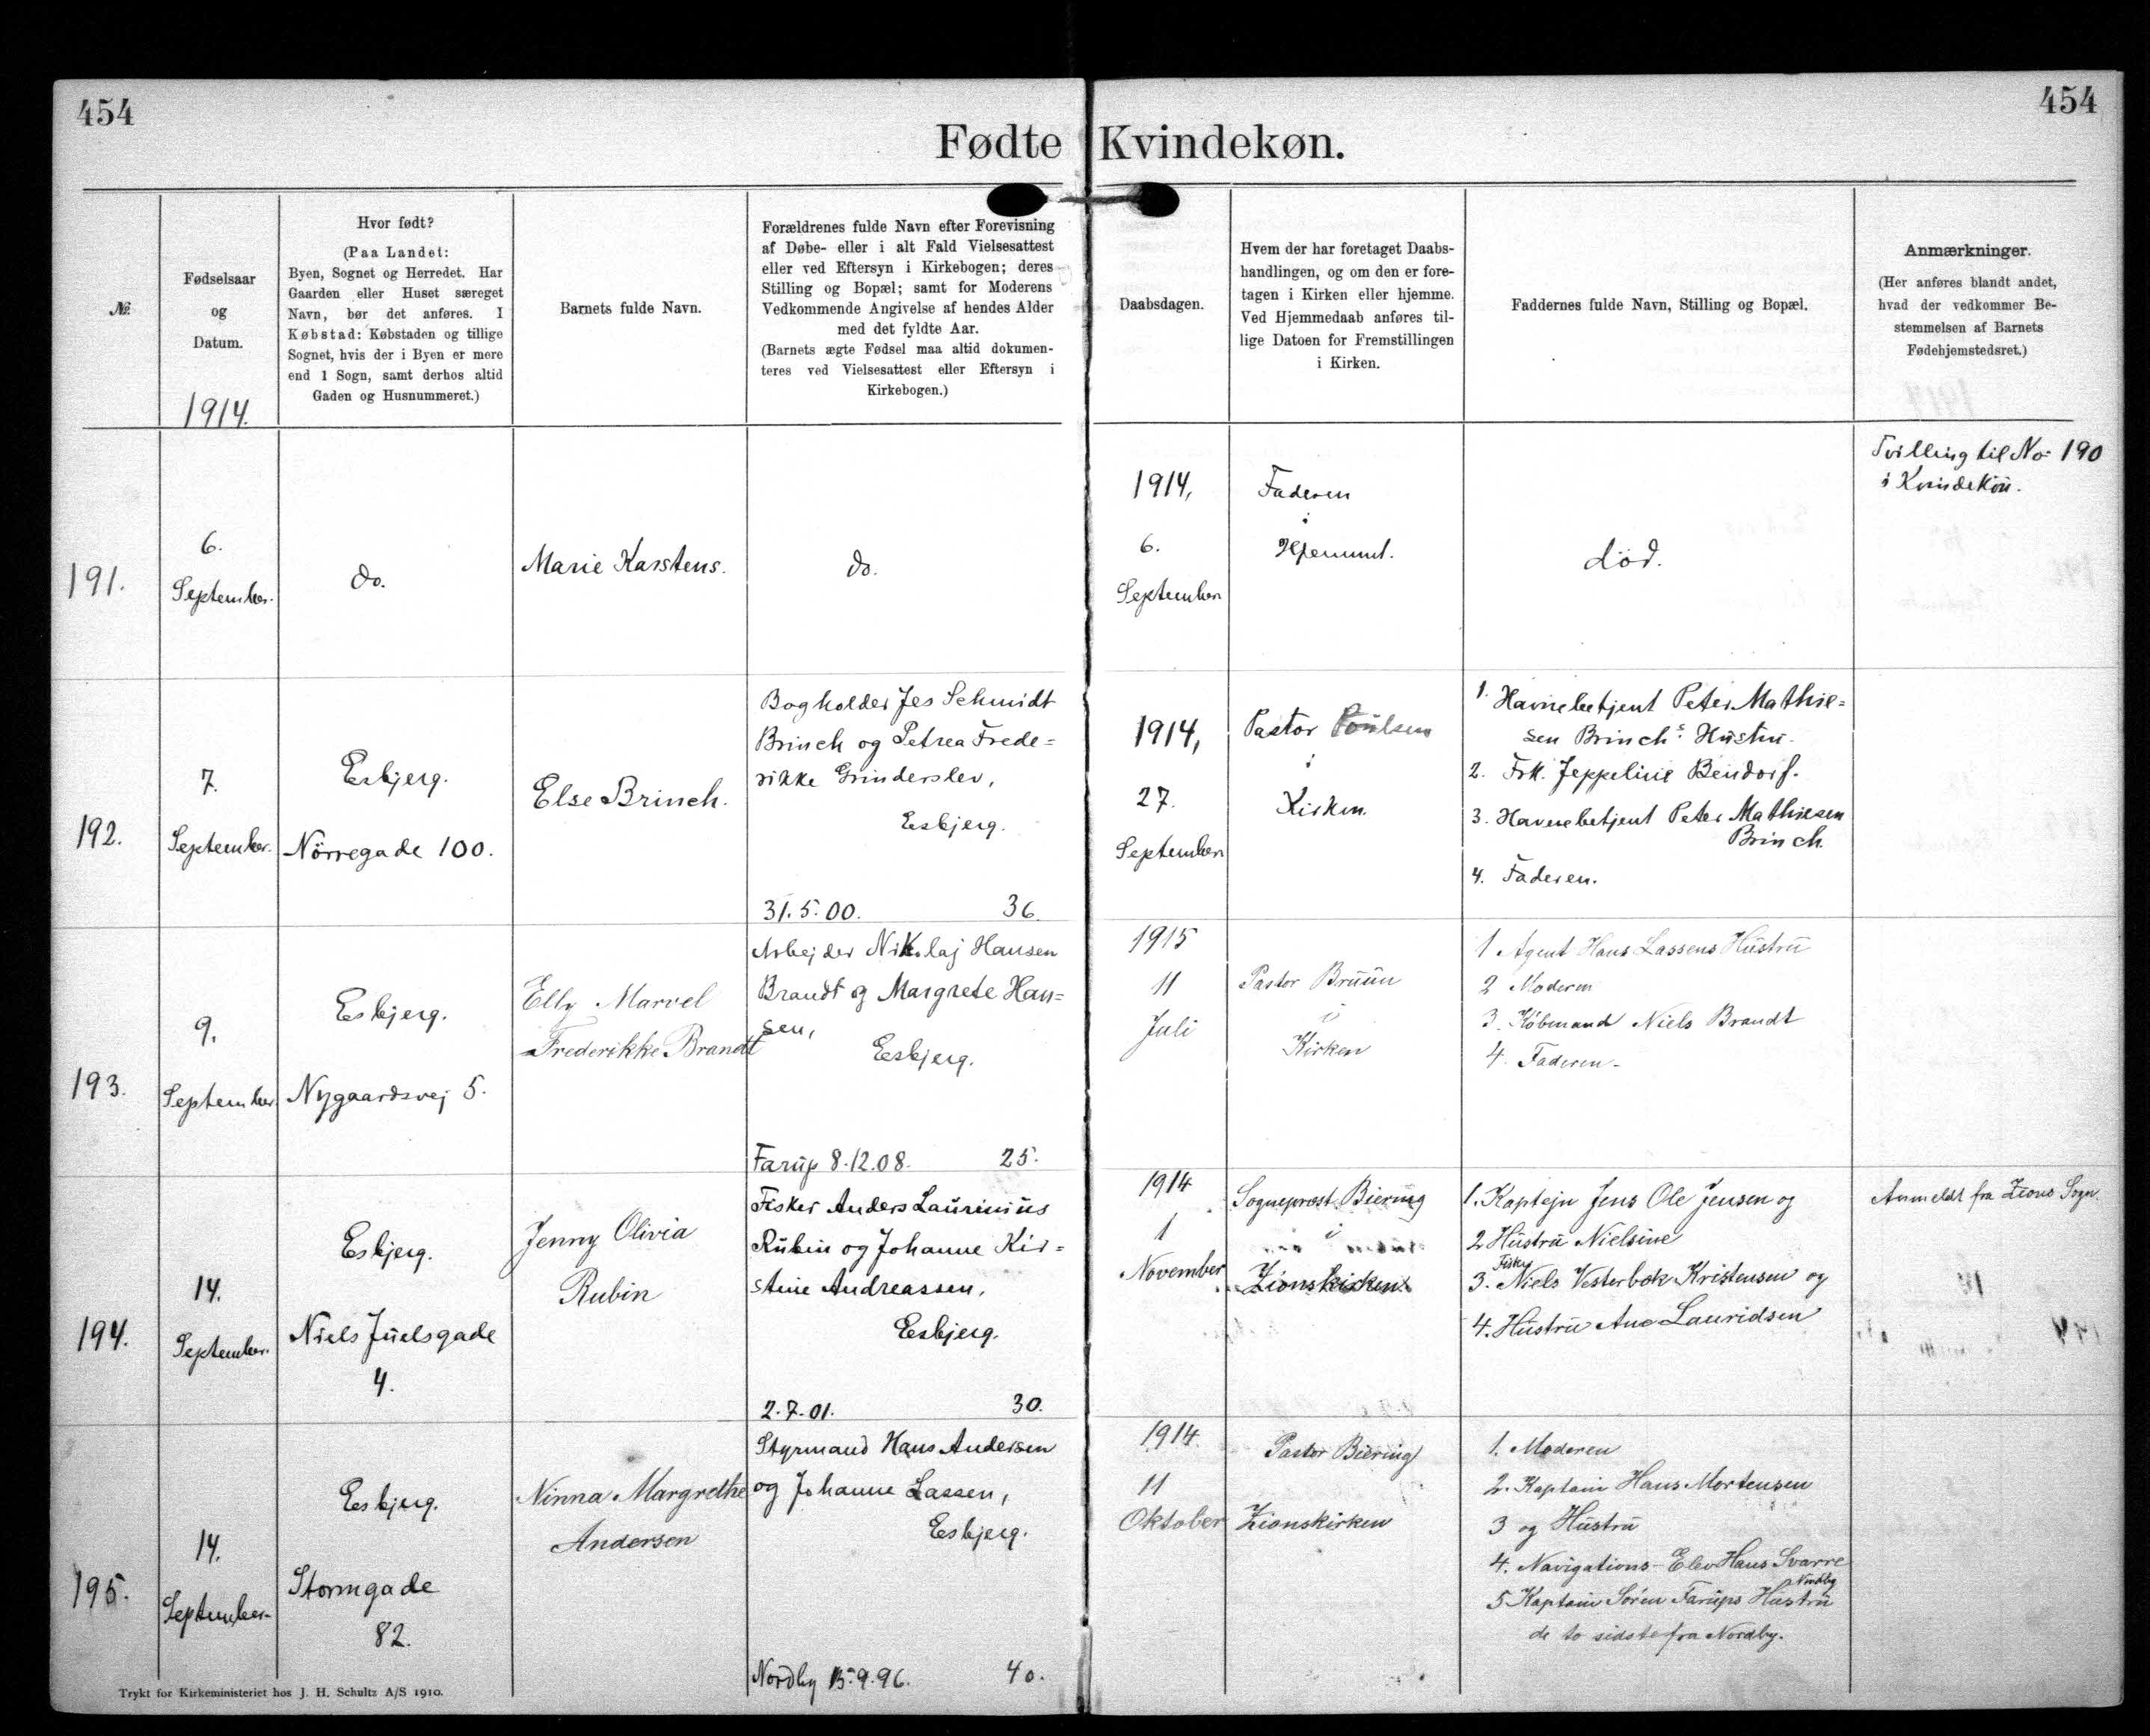 454
454
Fødte Kvindekøn.
№
Fødselsaar
og
Datum.
1914.
Hvor født?
(Paa Landet:
Byen, Sognet og Herredet. Har
Gaarden eller Huset særeget
Navn, bør det anføres. I
Købstad: Købstaden og tillige
Sognet, hvis der i Byen er mere
end 1 Sogn, samt derhos altid
Gaden og Husnummeret.)
Barnets fulde Navn.
Forældrenes fulde Navn efter Forevisning
af Døbe- eller i alt Fald Vielsesattest
eller ved Eftersyn i Kirkebogen; deres
Stilling og Bopæl; samt for Moderens
Vedkommende Angivelse af hendes Alder
med det fyldte Aar.
(Barnets ægte Fødsel maa altid dokumen-
teres ved Vielsesattest eller Eftersyn i
Kirkebogen.)
Daabsdagen.
Hvem der har foretaget Daabs-
handlingen, og om den er fore-
tagen i Kirken eller hjemme.
Ved Hjemmedaab anføres til-
lige Datoen for Fremstillingen
i Kirken.
Faddernes fulde Navn, Stilling og Bopæl.
Anmærkninger.
(Her anføres blandt andet,
hvad der vedkommer Be-
stemmelsen af Barnets
Fødehjemstedsret.)
191.
6.
September.
do.
Marie Karstens.
do.
1914,
6.
September
Faderen
i
Hjemmet.
død.
Tvilling til No 190
i Kvindekøn.
192.
7.
September.
Esbjerg.
Nørregade 100.
Else Brinch.
Bogholder Jes Schmidt
Brinch og Petrea Frede=
rikke Grinderslev,
Esbjerg.
31.5.00. 36.
1914,
27.
September
Pastor Poulsen
i
Kirken.
1. Havnebetjent Peter Mathie=
sen Brinch's Hustru.
2. Frk. Jeppeline Bendorf.
3. Havnebetjent Peter Mathiesen
Brinch.
4. Faderen.
193.
9.
September.
Esbjerg.
Nygaardsvej 5.
Elly Marvel
Frederikke Brandt
Arbejder Nikolaj Hansen
Brandt og Margrete Han=
sen,
Esbjerg.
Farup 8.12.08. 25.
1915
11
Juli
Pastor Bruun
i
Kirken
1 Agent Hans Lassens Hustru
2 Moderen
3. Købmand Niels Brandt
4. Faderen.
194.
14.
September.
Esbjerg.
Niels Juelsgade
4.
Jenny Olivia
Rubin
Fisker Anders Laurinius
Rubin og Johanne Kir=
stine Andreassen,
Esbjerg.
2.7.01. 30.
1914
1
November
Sognepræst Biering
i
Zionskirken
1. Kaptejn Jens Ole Jensen og
2 Hustru Nielsine
Fisker
3. Niels Vesterbæk Kristensen og
4. Hustru Ane Lauridsen
Anmeldt fra Zions Sogn.
195.
14.
September.
Esbjerg.
Stormgade
82.
Ninna Margrethe
Andersen
Styrmand Hans Andersen
og Johanne Lassen,
Esbjerg.
Nordby 15.9.96. 40.
1914
11
Oktober
Pastor Biering
Zionskirken
1. Moderen
2. Kaptain Hans Mortensen
3 og Hustru
4. Navigations-Elev Hans Svarre
Nordby
5 Kaptain Sören Farups Hustru
de to sidste fra Nordby.
Trykt for Kirkeministeriet hos J. H. Schultz A/S 1910.